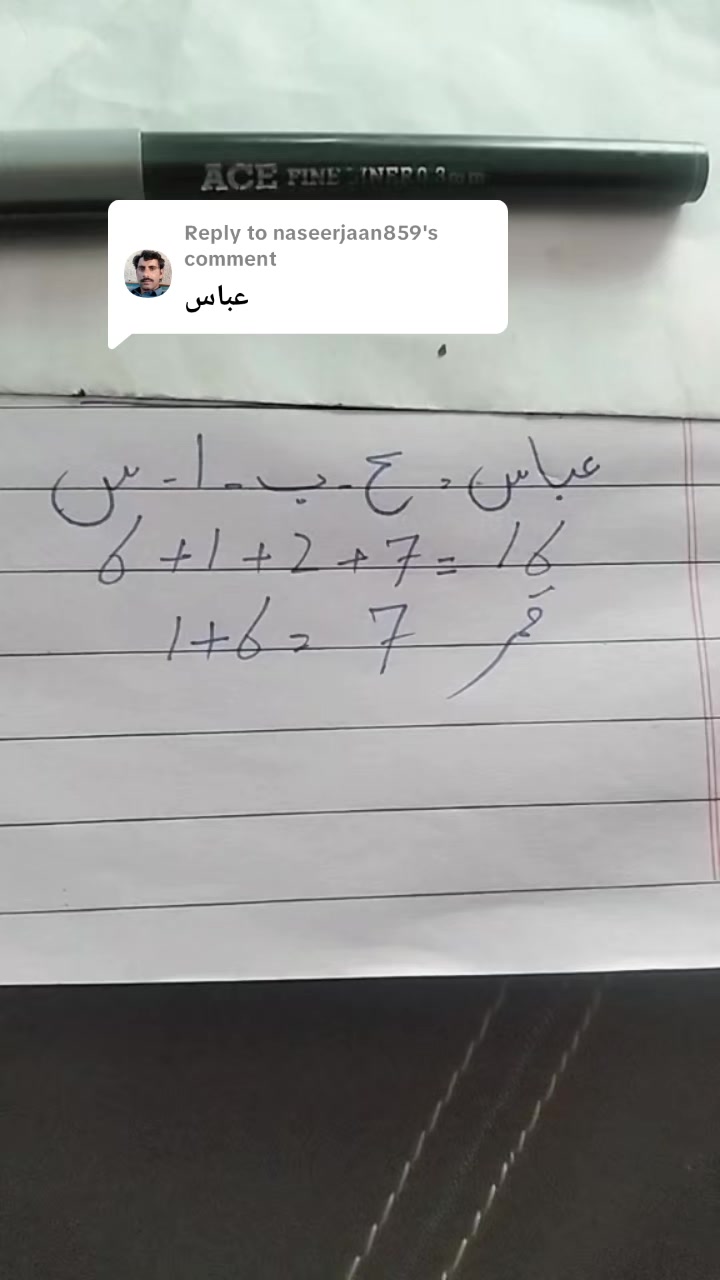 ACE FINE LINER 0.3mm
Reply to naseerjaan859's
comment
عباس
عباس = ع - ب - ا - س
6 + 1 + 2 + 7 = 16
1 + 6 = 7 قمر